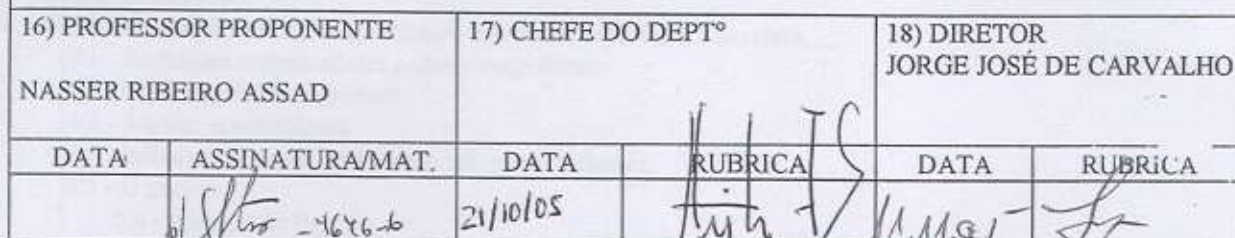 16) PROFESSOR PROPONENTE
NASSER RIBEIRO ASSAD
17) CHEFE DO DEPTº
18) DIRETOR
JORGE JOSÉ DE CARVALHO
DATA ASSINATURA/MAT. DATA RUBRICA DATA RUBRICA
21/10/05